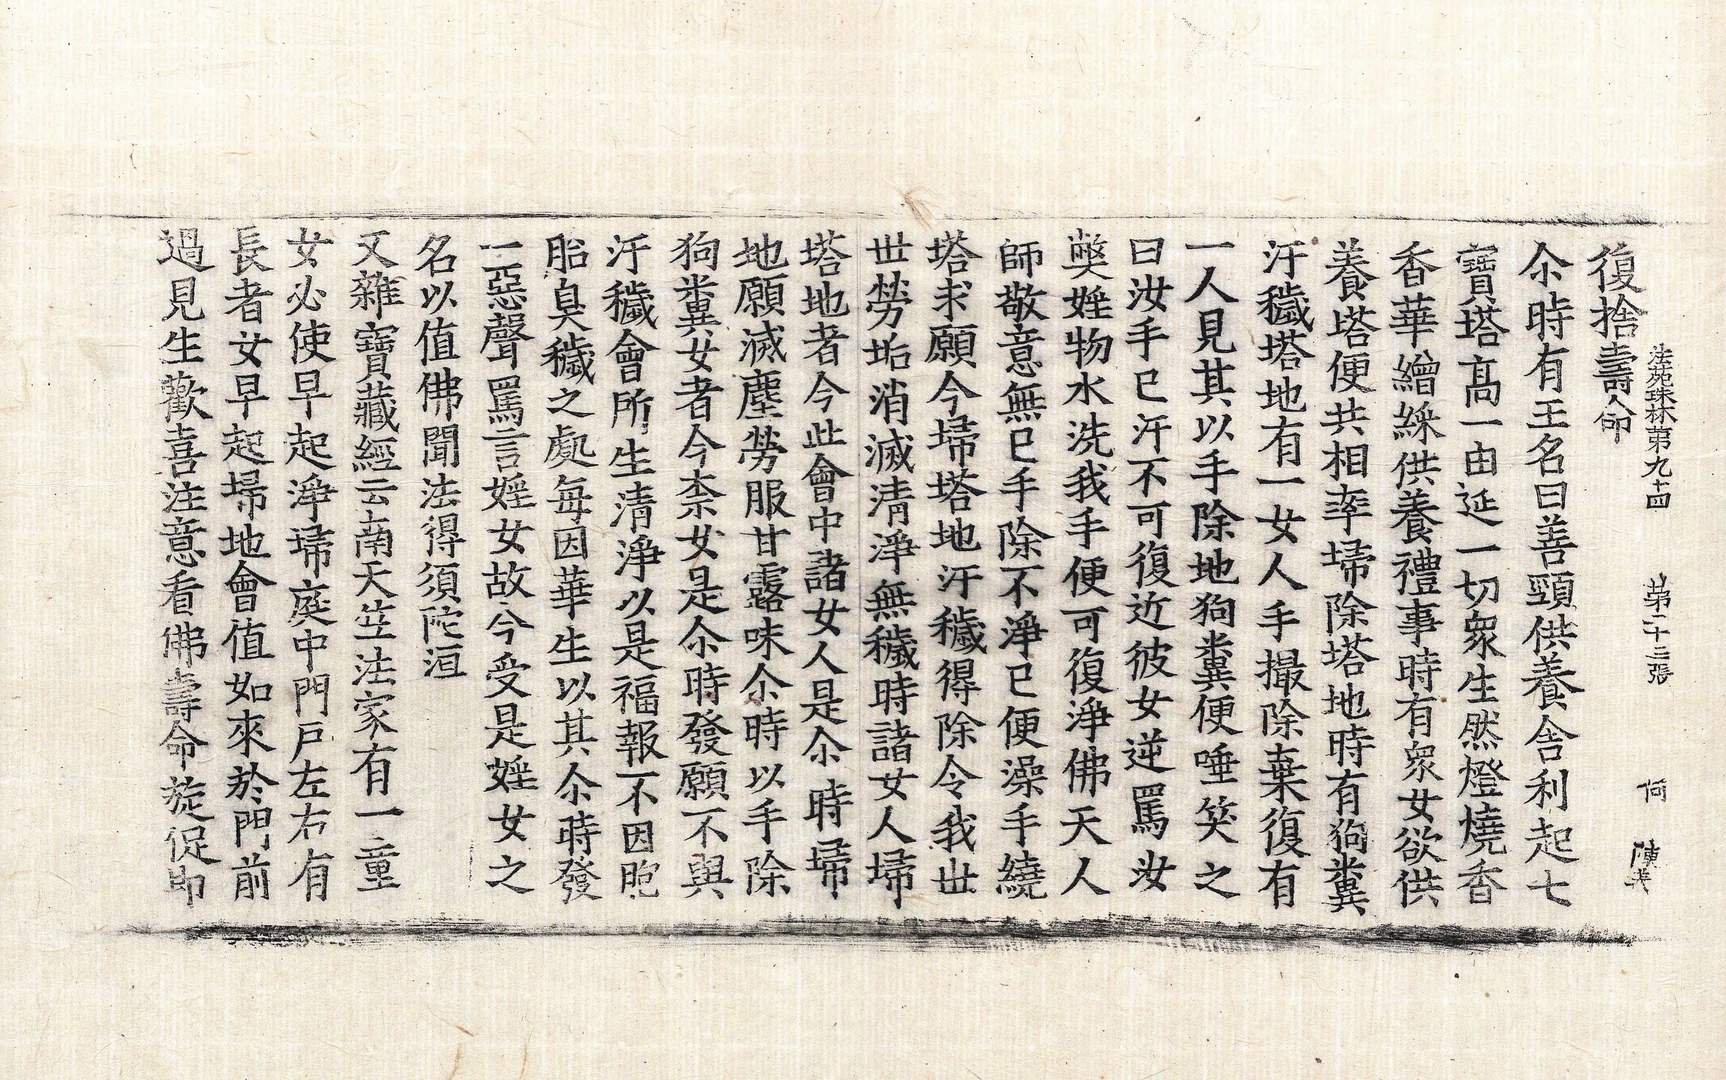 法苑珠林第九十四 第二十三張 何 陳
復捨壽命
尒時有王名曰善頸供養舎利起七
寶塔高一由延一切衆生然燈燒香
香華繒綵供養禮事時有衆女欲供
養塔便共相率埽除塔地時有狗糞
汙穢塔地有一女人手撮除棄復有
一人見其以手除地狗糞便唾笑之
曰汝手已汙不可復近彼女逆罵汝
獘婬物水洗我手便可復淨佛天人
師敬意無已手除不淨已便澡手繞
塔求願今埽塔地汙穢得除令我世
世勞垢消滅淸淨無穢時諸女人埽
塔地者今此會中諸女人是尒時埽
地願滅塵勞服甘露味尒時以手除
狗糞女者今柰女是尒時發願不與
汙穢會所生清淨以是福報不因胞
胎臭穢之處每因華生以其尒時發
一惡聲罵言婬女故今受是婬女之
名以值佛聞法得須陀洹
又雜寶藏經云南天竺法家有一童
女必使早起淨埽庭中門戶左右有
長者女早起埽地會值如來於門前
過見生歡喜注意看佛壽命旋促即